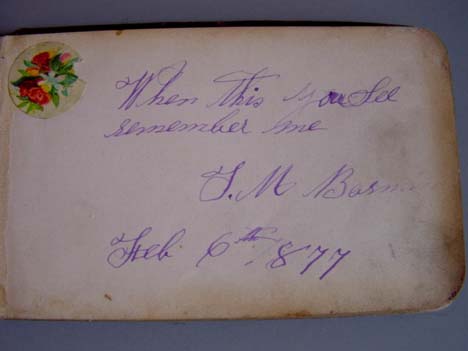 When this you See
remember me
S. M
Feb. 6th 1877